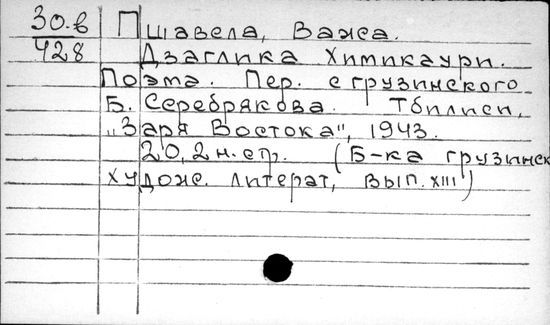 30.в Пшавела, Важа.
428 Дзаглика Химикаури.
Поэма. Пер. с грузинского
Б. Серебрякова. Тбилиси,
„Заря Востока", 1943.
20, 2 н. стр. (Б-ка грузинск
худож. литерат, вып. XIII)